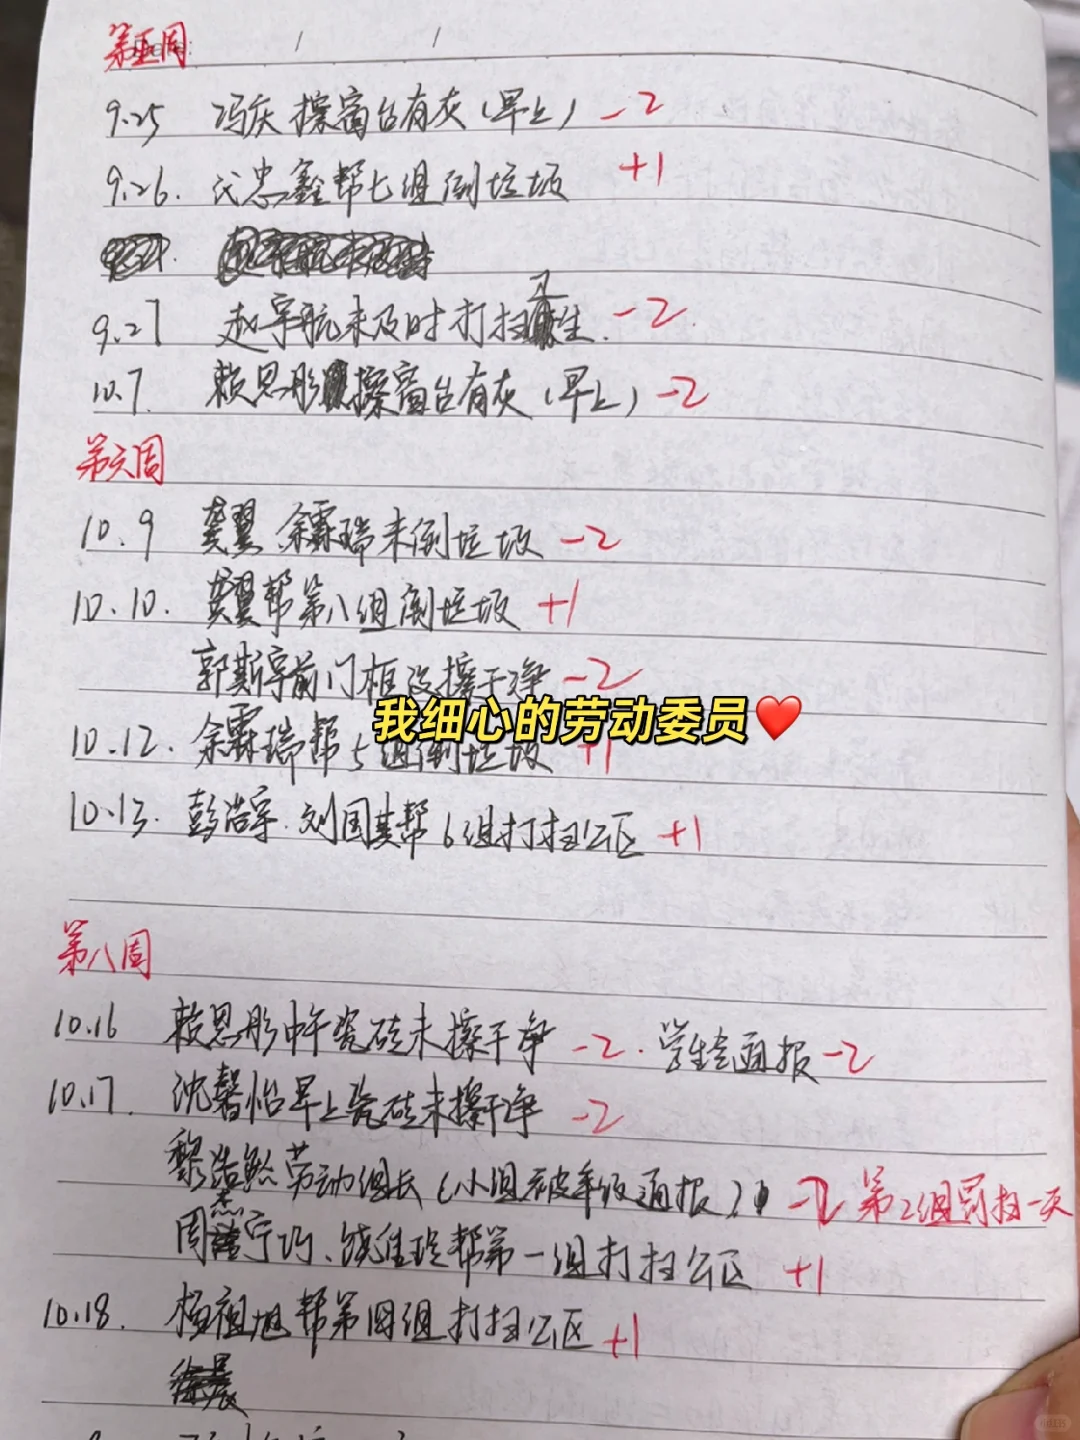 第五周
9.25 冯庆 擦窗台有灰(早上) -2
9.26. 代忠鑫帮七组倒垃圾 +1
9.27 赵宇航未及时打扫卫生. -2
10.7. 赖思彤擦窗台有灰(早上) -2
第六周
10.9 龚翼 余霖瑞未倒垃圾 -2
10.10. 龚翼帮第八组倒垃圾 +1
郭斯宇前门框没擦干净 -2
我细心的劳动委员❤️
10.12. 余霖瑞帮5组倒垃圾 +1
10.13. 彭浩宇.刘国英帮6组打扫公区 +1
第八周
10.16 赖思彤中午瓷砖未擦干净 -2. 学生会通报 -2
10.17. 沈馨怡早上瓷砖未擦干净 -2
黎浩 劳动组长(小组被年级通报) -2 第2组罚扫一天
周杰宁巧、饶佳玲帮第一组打扫公区 +1
10.18. 杨祖旭帮第四组打扫公区 +1